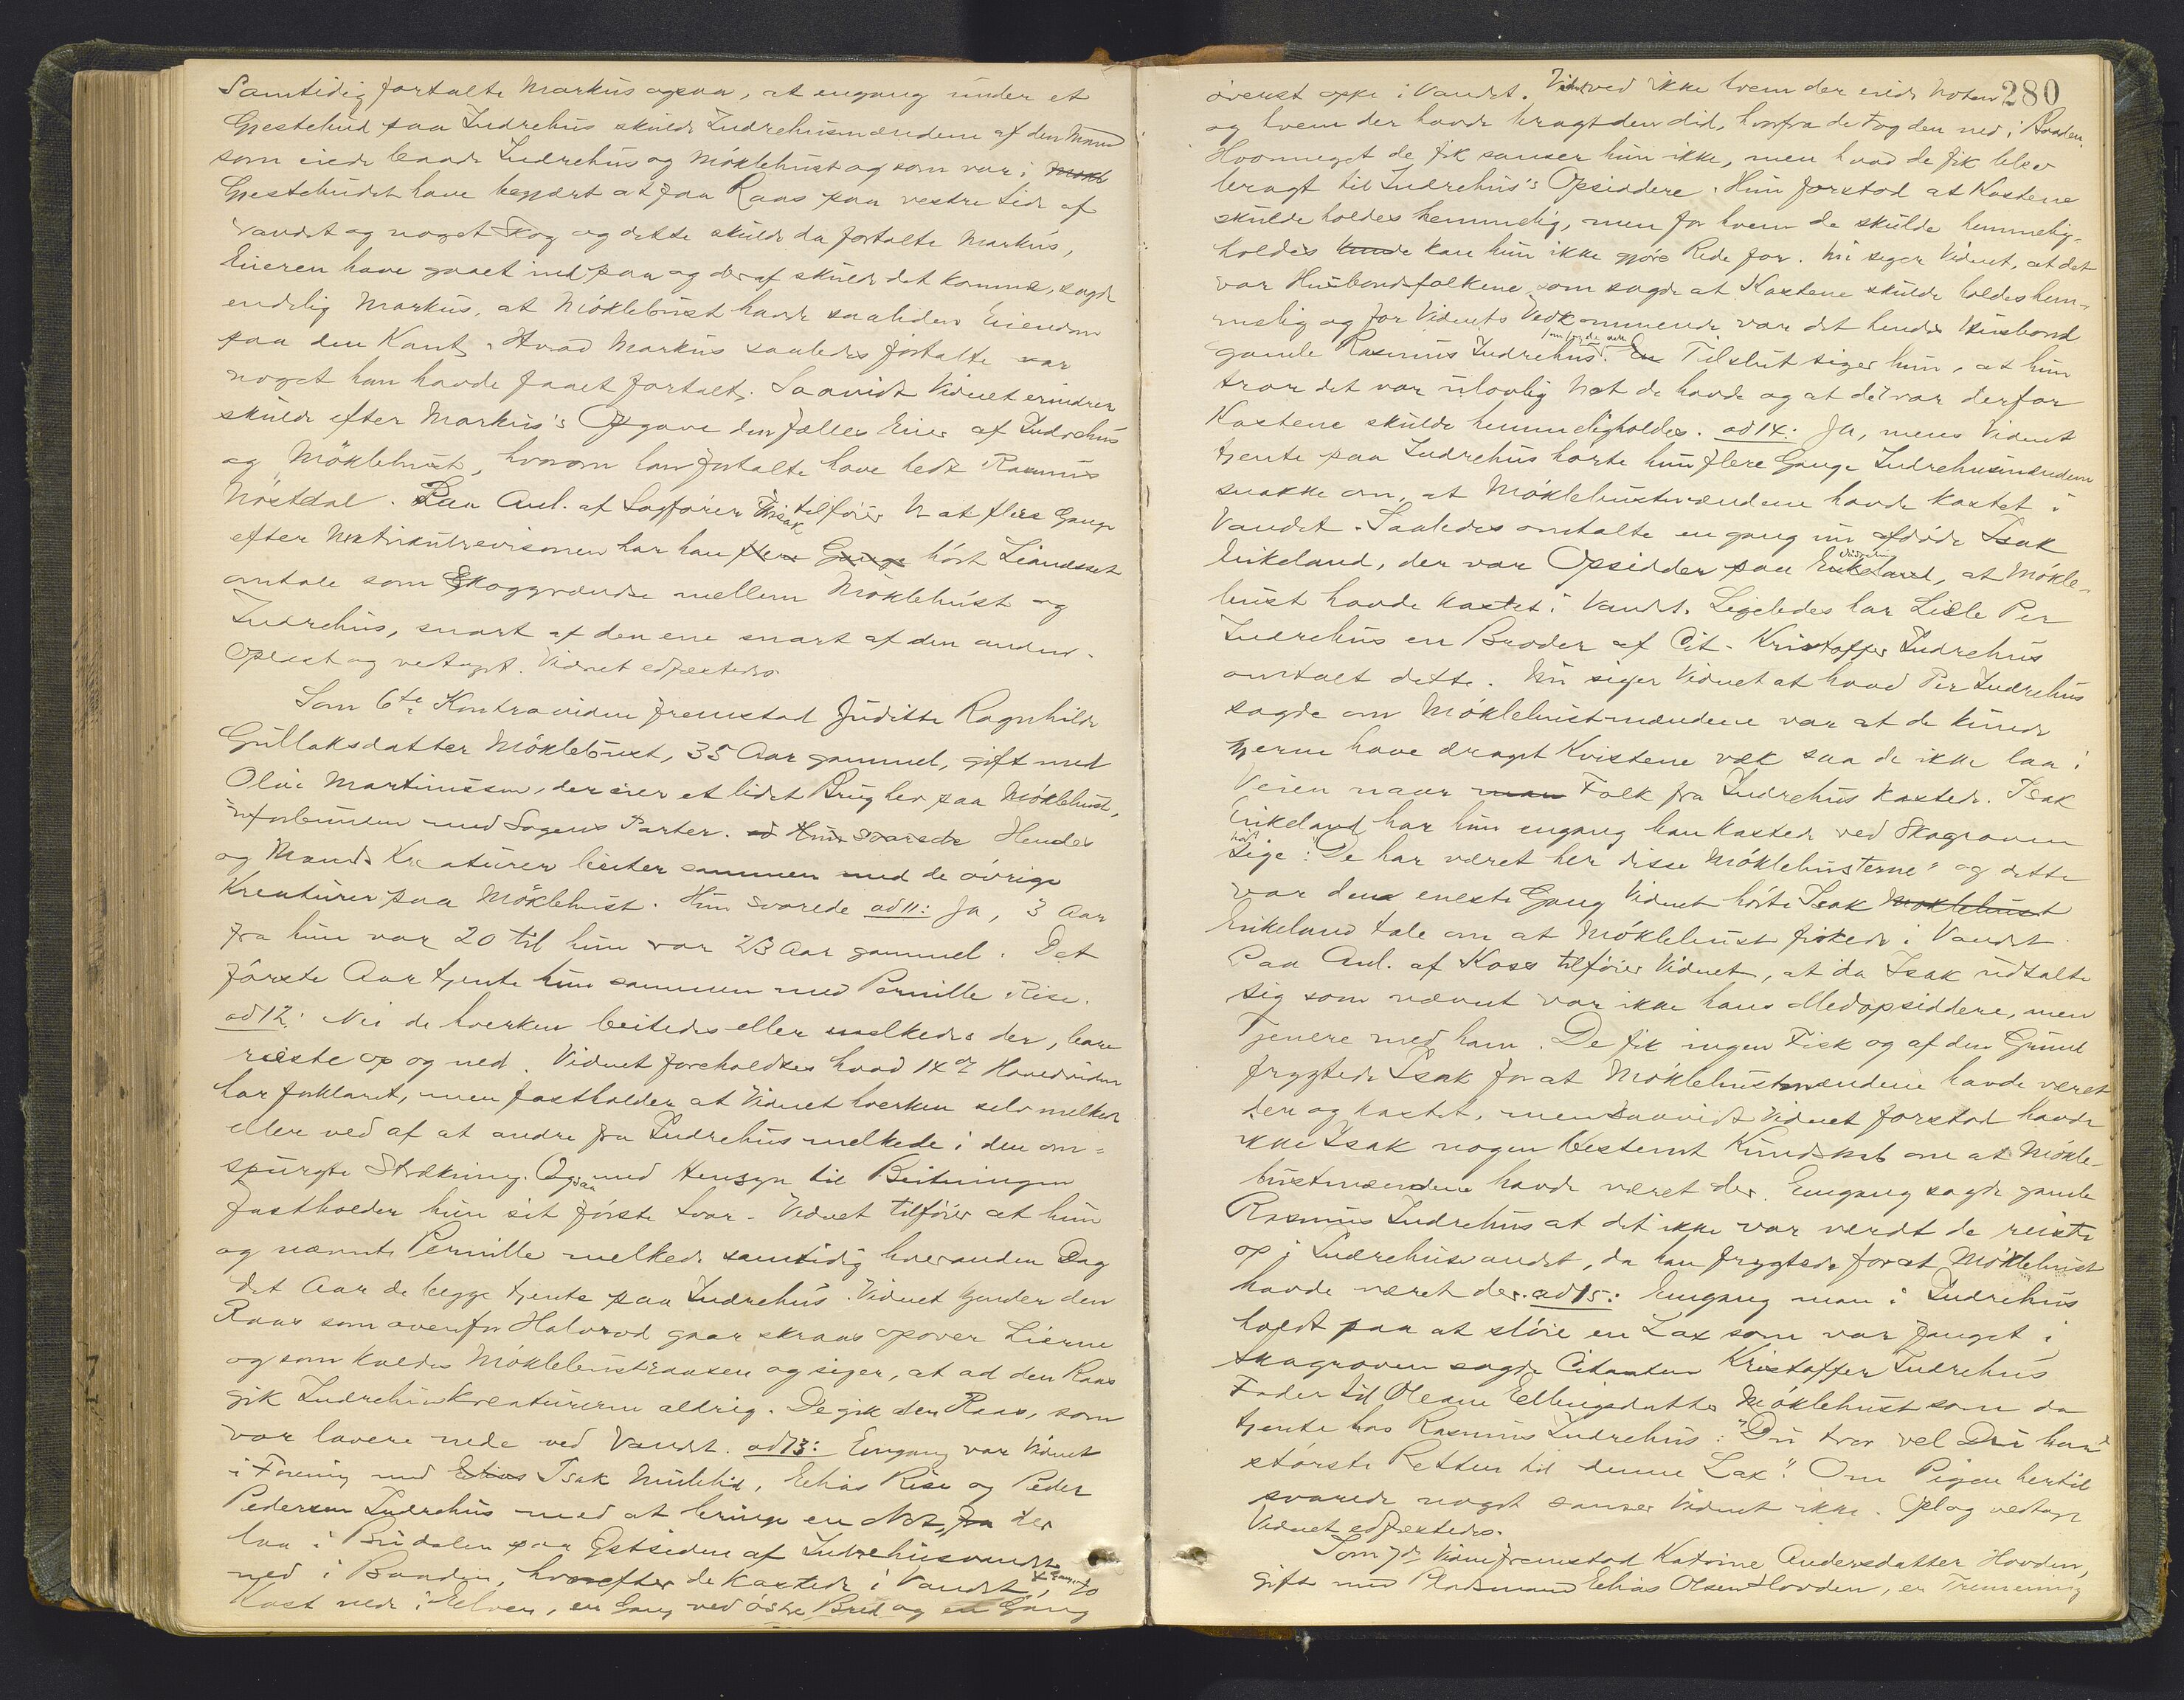 Samtidig fortalte Markus ogsaa, at engang under et
Gjestebud paa Indrehus skulde Indrehusmændene af den Mand
som eiede baade Indrehus og Möklebust og som var i Mökl
Gjestebudet have begjært at faa Raas paa vestre Side af
Vandet og noget Skog og dette skulde da fortalte Markus,
Eieren have gaaet ind paa og deraf skulde det komme, sagde
endelig Markus, at Möklebust havde saaliden Eiendom
paa den Kant. Hvad Markus saaledes fortalte var
noget han havde faaet fortalt. Saavidt Vidnet erindrer
skulde efter Markus's Opgave den fælles Eier af Indrehus
og Möklebust, hvorom han fortalte have hedt Rasmus
Nöstdal. Paa Anl. af Sagförer Isak tilföier V. at flere Gange
efter Matrikulrevisionen har han flere Gange hört Liandset
omtale som Skoggrændse mellem Möklebust og
Indrehus, snart af den ene snart af den anden.
Oplæst og vedtaget. Vidnet edfæstedes.
Som 6te Kontravidne fremstod Juditte Ragnhilde
Gullaksdatter Möklebust, 35 Aar gammel, gift med
Olai Martinussen, der eier et lidet Brug her paa Möklebust,
uforbunden med Sagens Parter. ad Hun svarede Hendes
og Mands Kreaturer beiter sammen med de övrige
Kreaturer paa Möklebust. Hun svarede ad 11: Ja, 3 Aar
fra hun var 20 til hun var 23 Aar gammel. Det
förste Aar tjente hun sammen med Pernille Rise.
ad 12: Nei de hverken beitedes eller melkedes der, bare
reiste op og ned. Vidnet foreholdtes hvad 14de Hovedvidne
har forklaret, men fastholder at Vidnet hverken selv melket
eller ved af at andre fra Indrehus melkede i den om-
spurgte Strækning. Ogsaa med Hensyn til Beitningen
fastholder hun sit förste Svar. Vidnet tilföier at hun
og nævnte Pernille melkede samtidig hveranden Dag
det Aar de begge tjente paa Indrehus. Vidnet kjender den
Raas som ovenfor Halvrod gaar skraas opover Lierne
og som kaldes Möklebustraasen og siger, at ad den Raas
gik Indrehuskreaturerne aldrig. De gik den Raas, som
var lavere nede ved Vandet. ad 13: Engang var Vidnet
i Forening med Elias Isak, Elias Rise og Peder
Pedersen Indrehus med at bringe en Not, fra der
laa i Brudalen paa Östsiden af Indrehusvandet
ned i Baaden, hvorefter de kastede i Vandet, to
Kast nede i Elven, en Gang ved östre Bred og en Gang
280
överst oppe i Vandet. Vidnet ved ikke hvem der eiede Noten
og hvem der havde bragt den did, hvorfra de tog den ned i Baaden.
Hvormeget de fik sanser hun ikke, men hvad de fik blev
bragt til Indrehus's Opsiddere. Hun forstod at Kastene
skulde holdes hemmelig, men for hvem de skulde hemmelig-
holdes kunde kan hun ikke gjöre Rede for. Nu siger Vidnet, at det
var Husbondsfolkene som sagde at Kastene skulde holdes hem-
melig og for Vidnets Vedkommende var det hendes Husbond
gamle Rasmus Indrehus som sagde det. En Tilslut siger hun, at hun
tror det var ulovlig Not de havde og at det var derfor
Kastene skulde hemmeligholdes. ad 14: Ja, mens Vidnet
tjente paa Indrehus hörte hun flere Gange Indrehusmændene
snakke om, at Möklebustmændene havde kastet i
Vandet. Saaledes omtalte engang nu afdöde Isak
Eikeland, der var Opsidder paa Eikeland, at Mökle-
bust havde kastet i Vandet. Ligeledes har Lisle Per
Indrehus en Broder af Cit. Kristoffer Indrehus
omtalt dette. Nu siger Vidnet at hvad Per Indrehus
sagde om Möklebustmændene var at de kunde
gjerne have draget Kvistene væk saa de ikke laa i
Veien naar man Folk fra Indrehus kastede. Isak
Eikeland har hun engang han kastede ved Skagraven
hört sige: "De har været her disse Möklebusterne" og dette
var den eneste Gang Vidnet hörte Isak Möklebust
Eikeland tale om at Möklebust fiskede i Vandet.
Paa Anl. af Koss tilföier Vidnet, at da Isak udtalte
sig som nævnt var ikke hans Medopsiddere, men
Tjenere med ham. De fik ingen Fisk og af den Grund
frygtede Isak for at Möklebustmændene havde været
der og kastet, men saavidt Vidnet forstod havde
ikke Isak nogen bestemt Kundskab om at Mökle-
bustmændene havde været der. Engang sagde gamle
Rasmus Indrehus at det ikke var værdt de reiste
op i Indrehusvandet, da han frygtede for at Möklebust
havde været der. ad 15: Engang man i Indrehus
holdt paa at slöie en Lax som var fanget i
Skagraven sagde Citanten Kristoffer Indrehus
Fader til Oleane Ellingsdatter Möklebust som da
tjente hos Rasmus Indrehus: "Du tror vel Du har
störste Retten til denne Lax." Om Pigen hertil
svarede noget sanser Vidnet ikke. Opl og vedtaget
Vidnet edfæstedes.
Som 7de Vidne fremstod Katrine Andersdatter Hovden,
gift med Pladsmand Elias Olsen Hovden, er Tremening